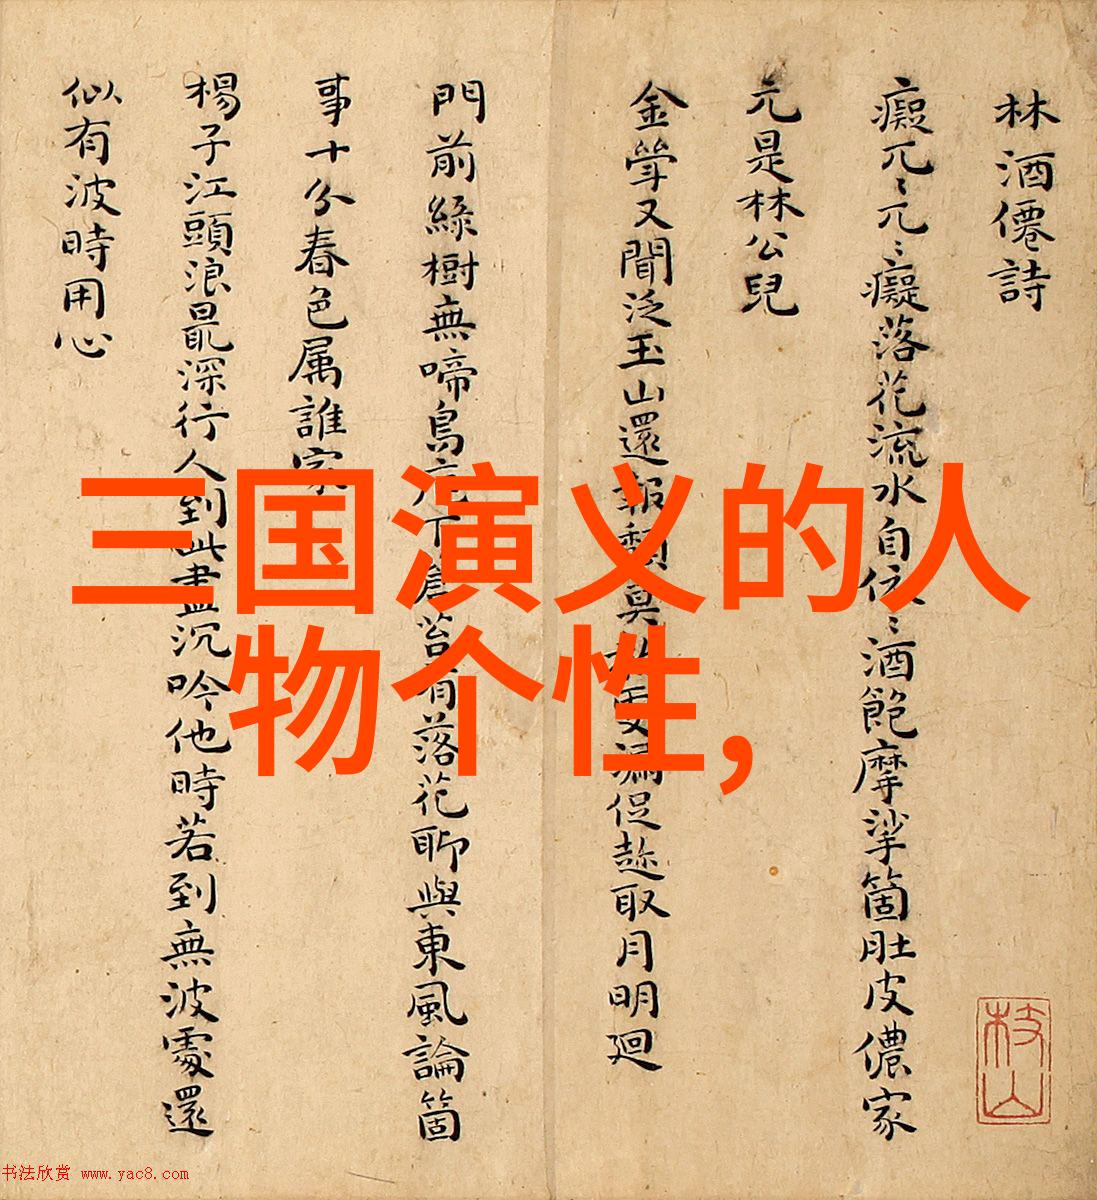 林酒僊詩
癡兀〻兀〻癡落花流水自依〻酒飽摩挲箇肚皮儂家
元是林公兒
金斝又聞泛玉山還報頽莫教更漏促趁取月明廻
門前綠樹無啼鳥庭下蒼苔有落花聊與東風論箇
事十分春色属誰家
楊子江頭浪最深行人到此盡沉吟他時若到無波處還
似有波時用心
三国演义的人
物个性,
枝山
书法欣赏 www.yac8.com